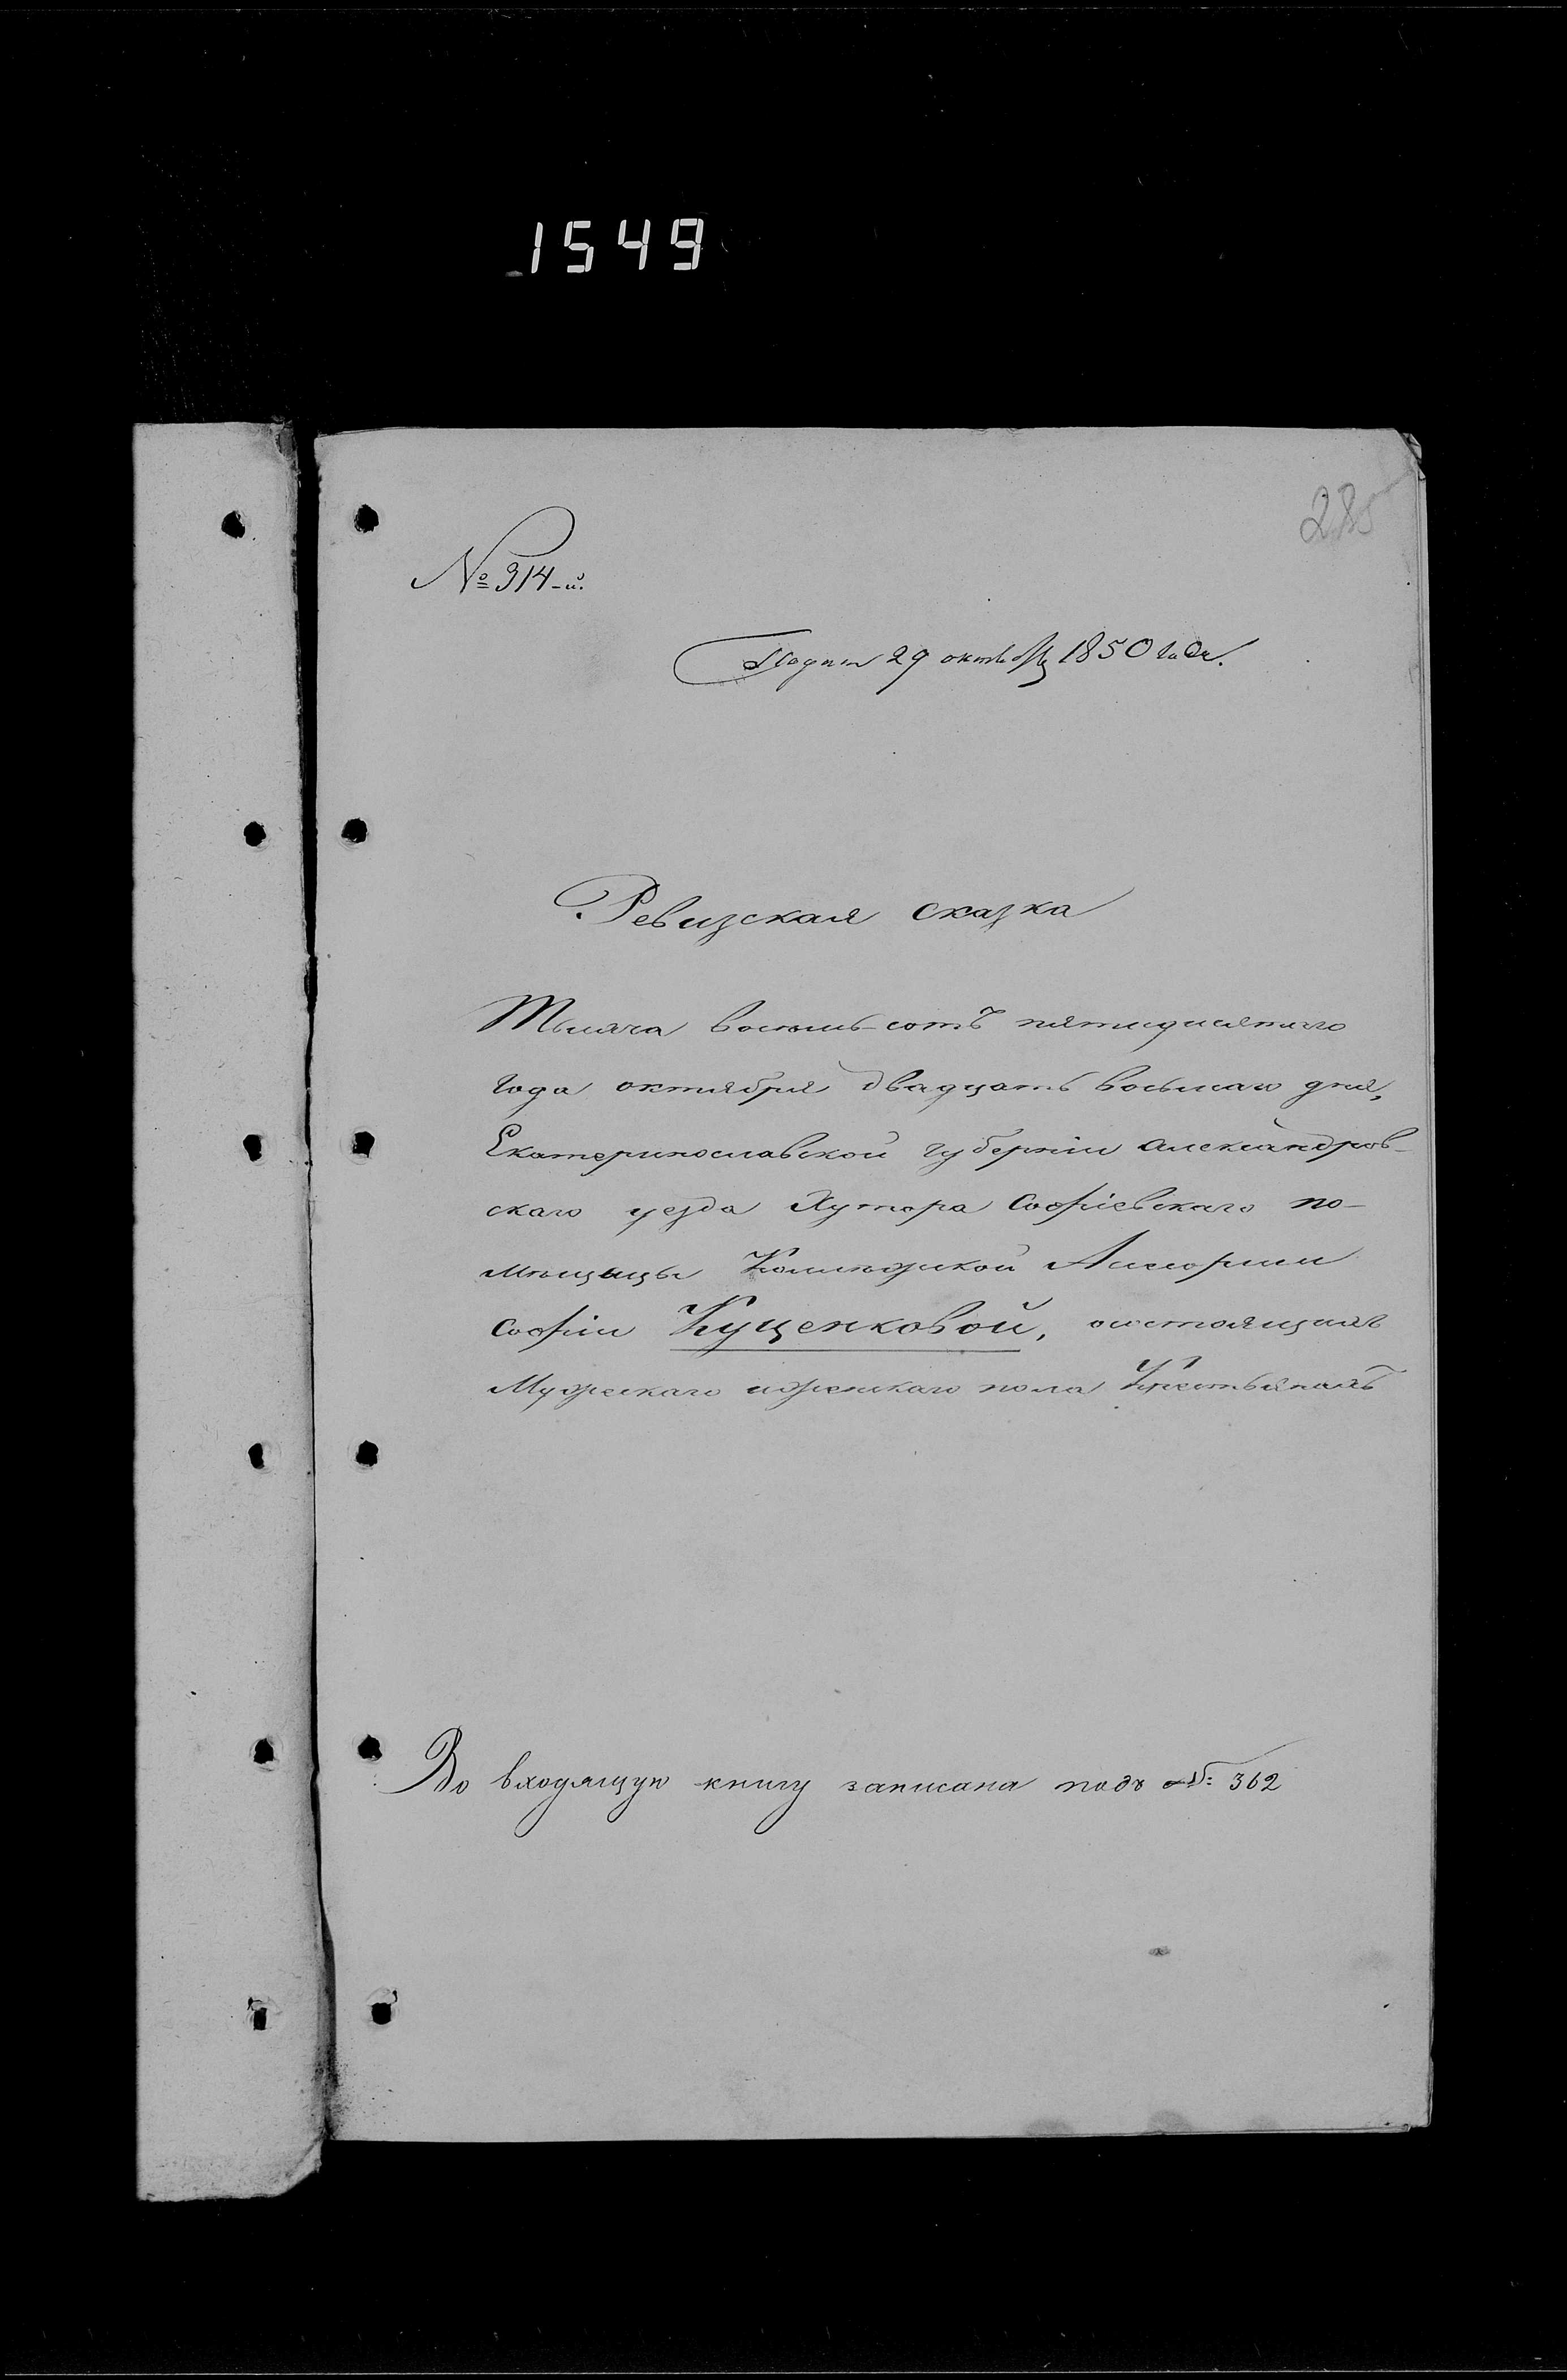 1549
285
№ 314-й.
Подана 29 октября 1850 года.
Ревизская сказка
Тысяча восемь-сотъ пятидесятаго
года октября двадцать восьмаго дня,
Екатеринославской губерніи Александров-
скаго уезда Хутора Софіевскаго по-
мѣщицы Колежской Асесорши
Софіи Куценковой, о состоящихъ
Мужескаго и женскаго пола Крестьянахъ
Во входящую книгу записана подъ №: 362